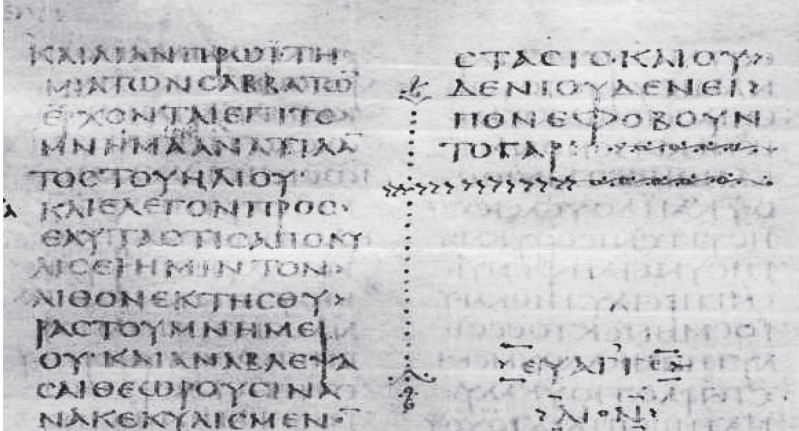 ΚΑΙΛΙΑΝΠΡΩΙΤΗ
ΜΙΑΤΩΝϹΑΒΒΑΤΩ̅
ΕΡΧΟΝΤΑΙΕΠΙΤΟ
ΜΝΗΜΑΑΝΑΤΙΛΑ̅
ΤΟϹΤΟΥΗΛΙΟΥ·
ΚΑΙΕΛΕΓΟΝΠΡΟϹ
ΕΑΥΤΑϹΤΙϹΑΠΟΚΥ
ΛΙϹΕΙΗΜΙΝΤΟΝ›
ΛΙΘΟΝΕΚΤΗϹΘΥ›
ΡΑϹΤΟΥΜΝΗΜΕΙ
ΟΥ·ΚΑΙΑΝΑΒΛΕΨΑ
ϹΑΙΘΕΩΡΟΥϹΙΝΑ
ΝΑΚΕΚΥΛΙϹΜΕΝΟ̅
ϹΤΑϹΙϹ·ΚΑΙΟΥ›
ΔΕΝΙΟΥΔΕΝΕΙ›
ΠΟΝΕΦΟΒΟΥΝ
ΤΟΓΑΡ·
ΕΥΑΓΓΕ
ΛΙΟΝ